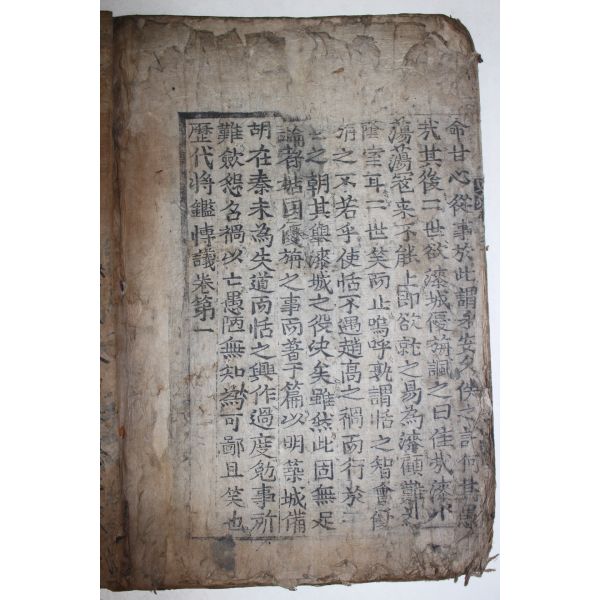 命甘心從事於此謂永安久佚之計何其愚
㢤其後二世欲漆城優旃諷之曰佳㢤漆
蕩蕩寇来不能上即欲就之易為漆顧難
室耳二世笑而止嗚呼孰謂恬之智會優
旃之不若乎使恬不遇趙高之禍而行於
世之朝其與漆城之役决矣雖然此固無足
論者姑因優旃之事而著于篇以明築城備
胡在秦未為失道而恬之興作過度勉事所
難斂怨名禍以亡愚陋無知為可鄙且笑也
歷代將鑑愽議卷第一